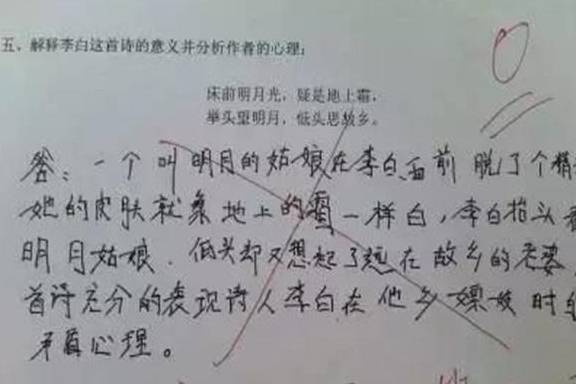 五、解释李白这首诗的意义并分析作者的心理：
床前明月光，疑是地上霜，
举头望明月，低头思故乡。
答：一个叫明月的姑娘在李白面前脱了个精
她的皮肤就象地上的霜一样白，李白抬头看
明月姑娘．低头却又想起了远在故乡的老婆
首诗充分的表现诗人李白在他乡嫖妓时的
矛盾心理。
0